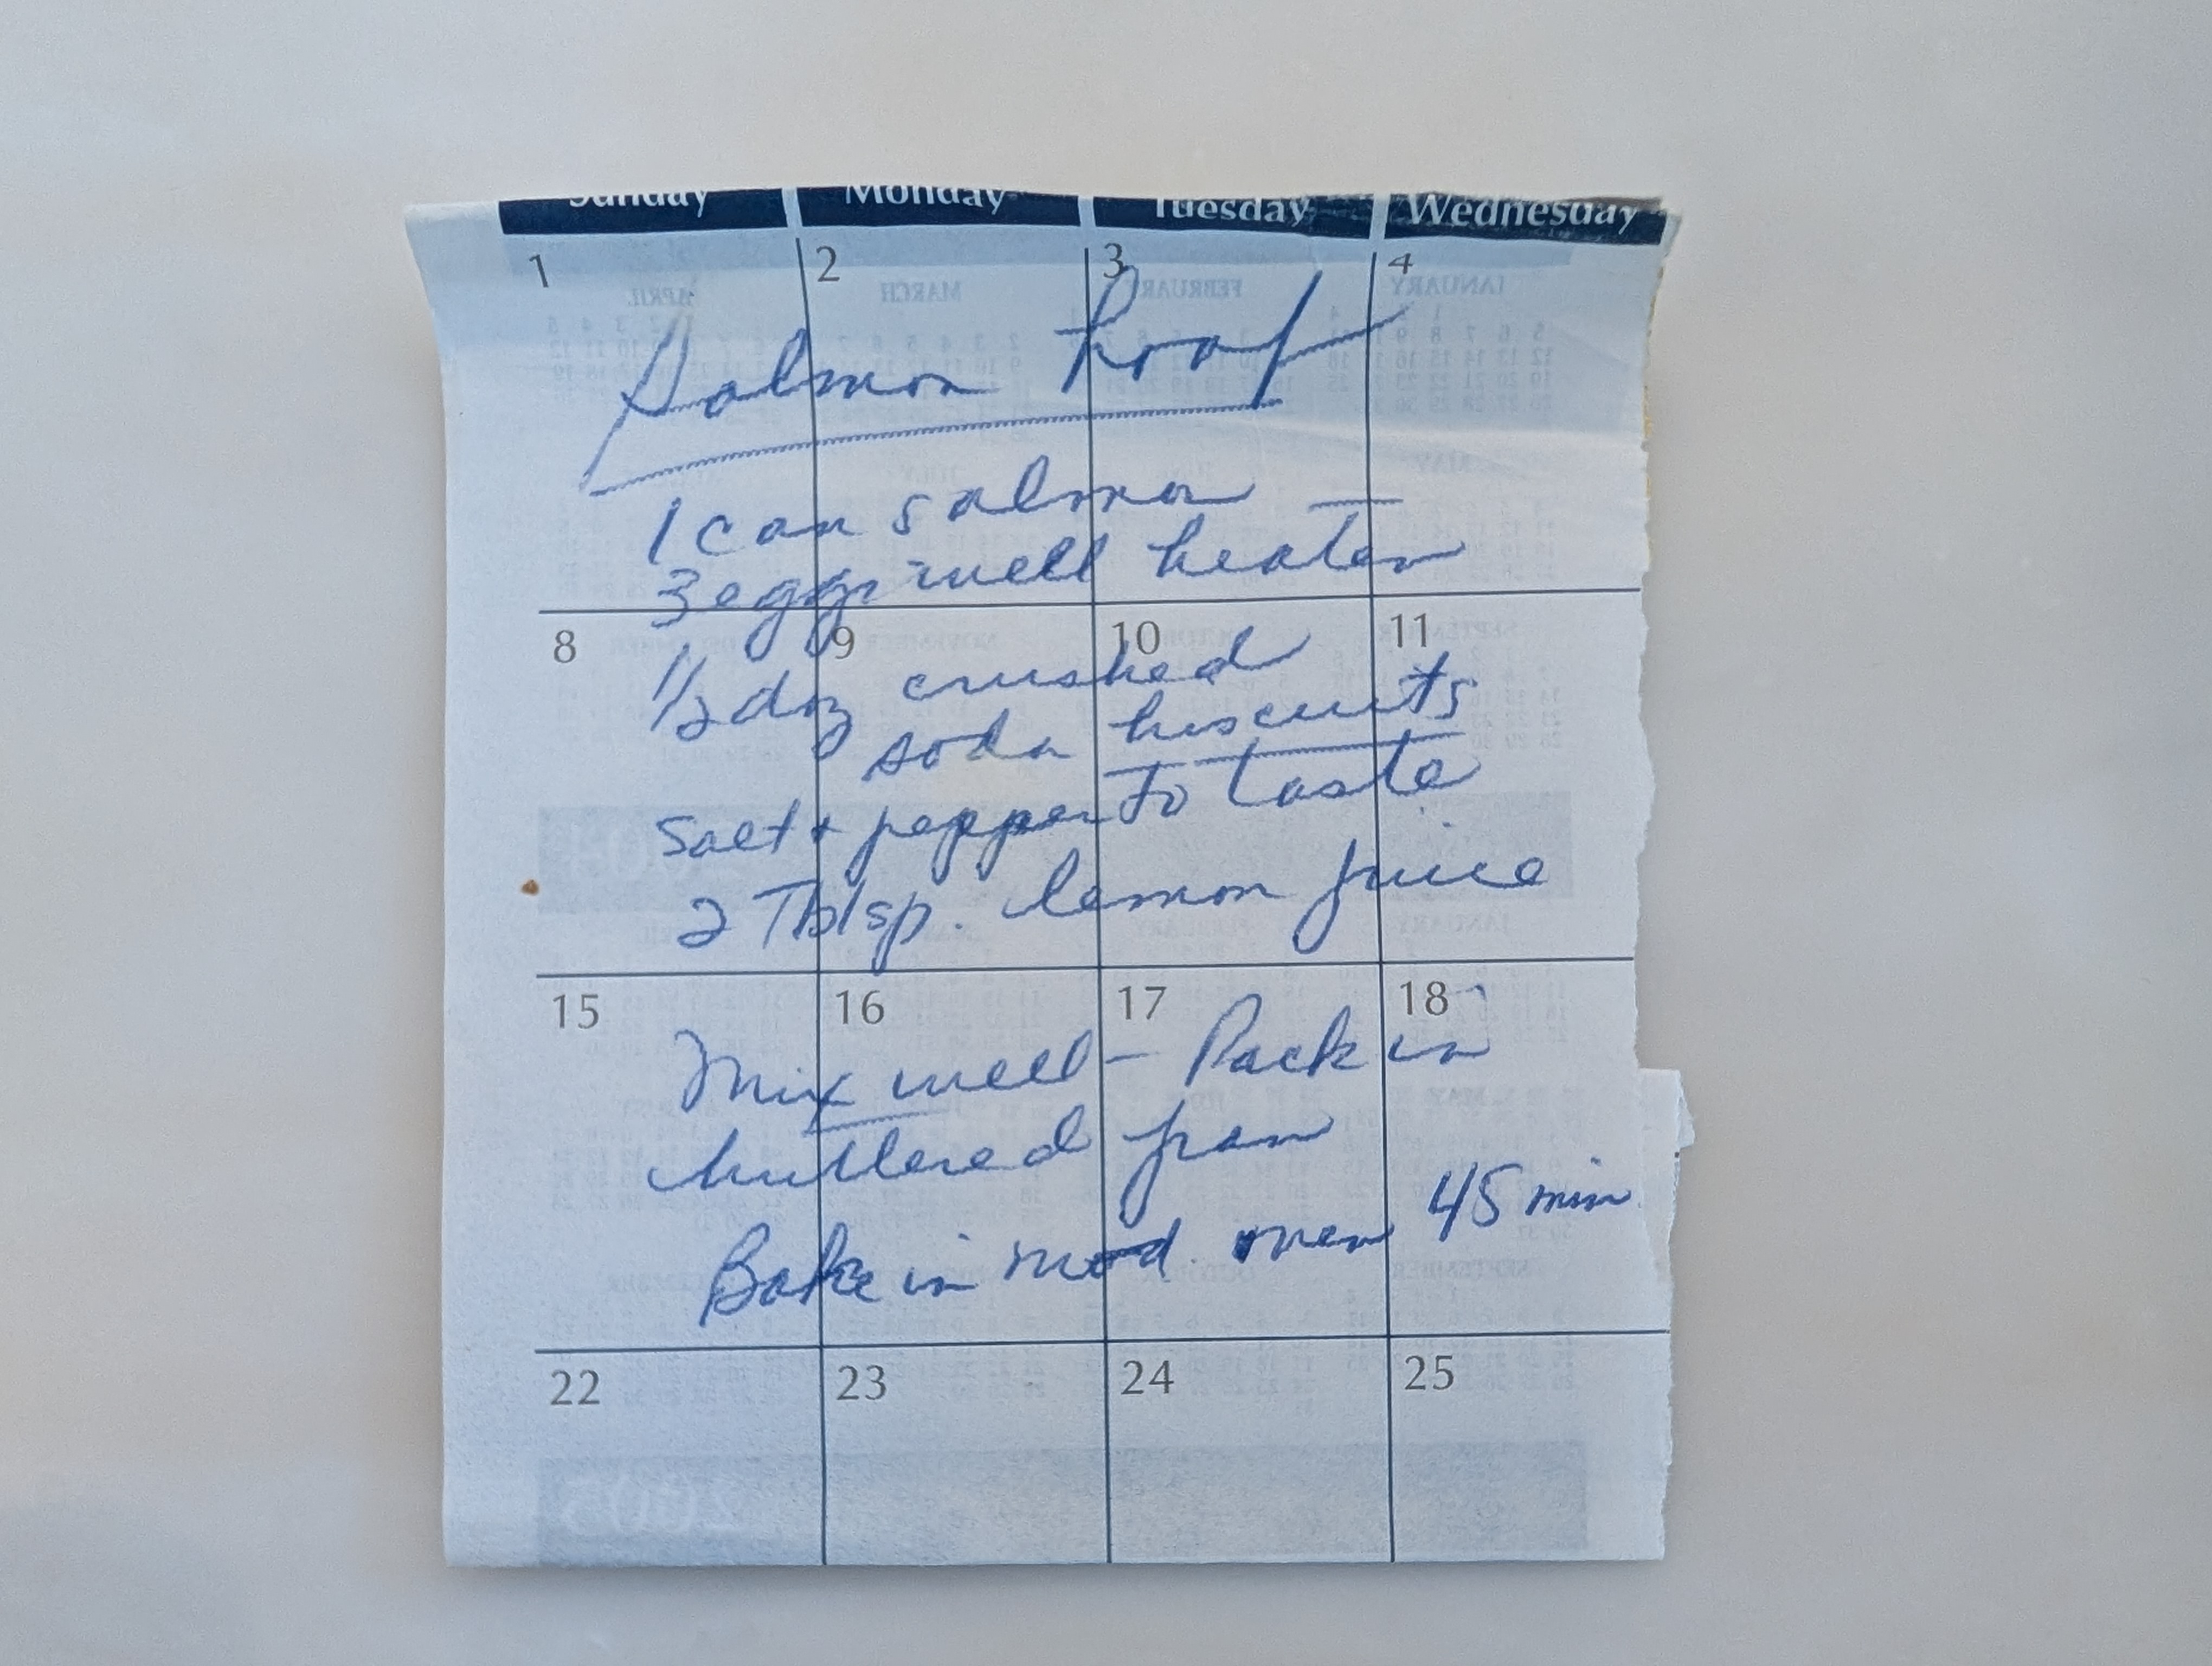 Sunday Monday Tuesday Wednesday
1 2 3 4
Salmon Loaf
1 can salmon —
3 eggs well beaten
8 9 10 11
1/2 doz crushed
soda biscuits
salt + pepper to taste
2 Tblsp. lemon juice
15 16 17 18
Mix well — Pack in
buttered pan
Bake in mod oven 45 min.
22 23 24 25
2005